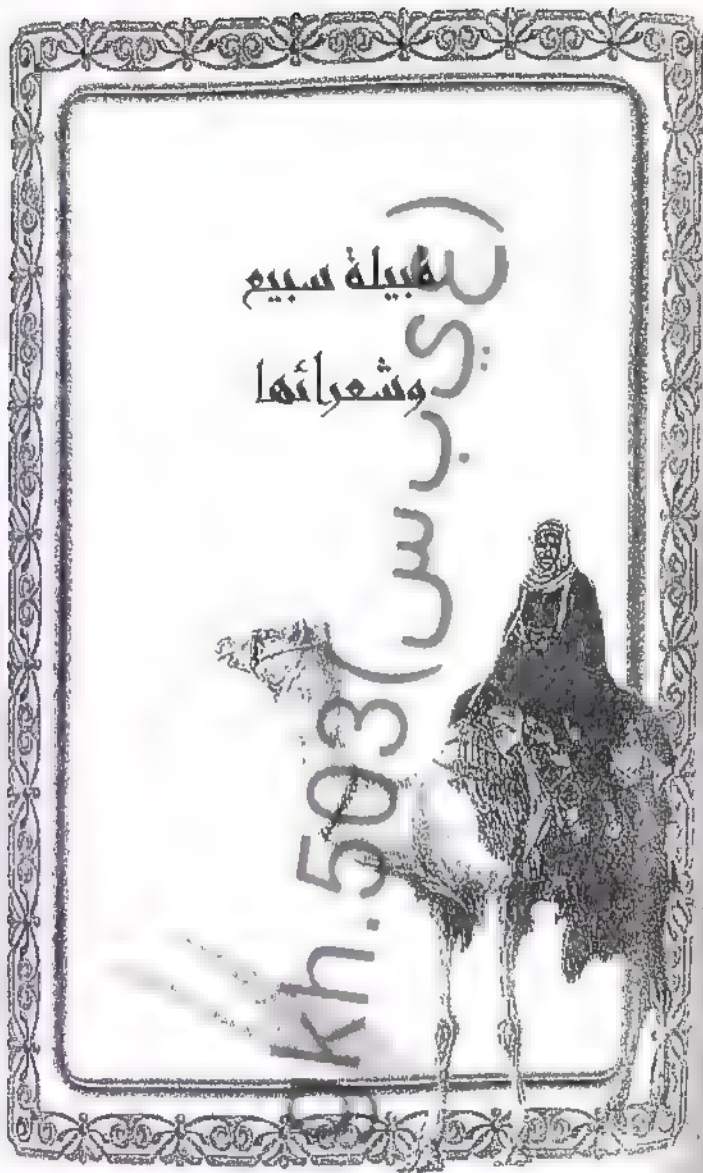 قبيلة سبيع
وشعرائها
kh.503(س ب ي ع)